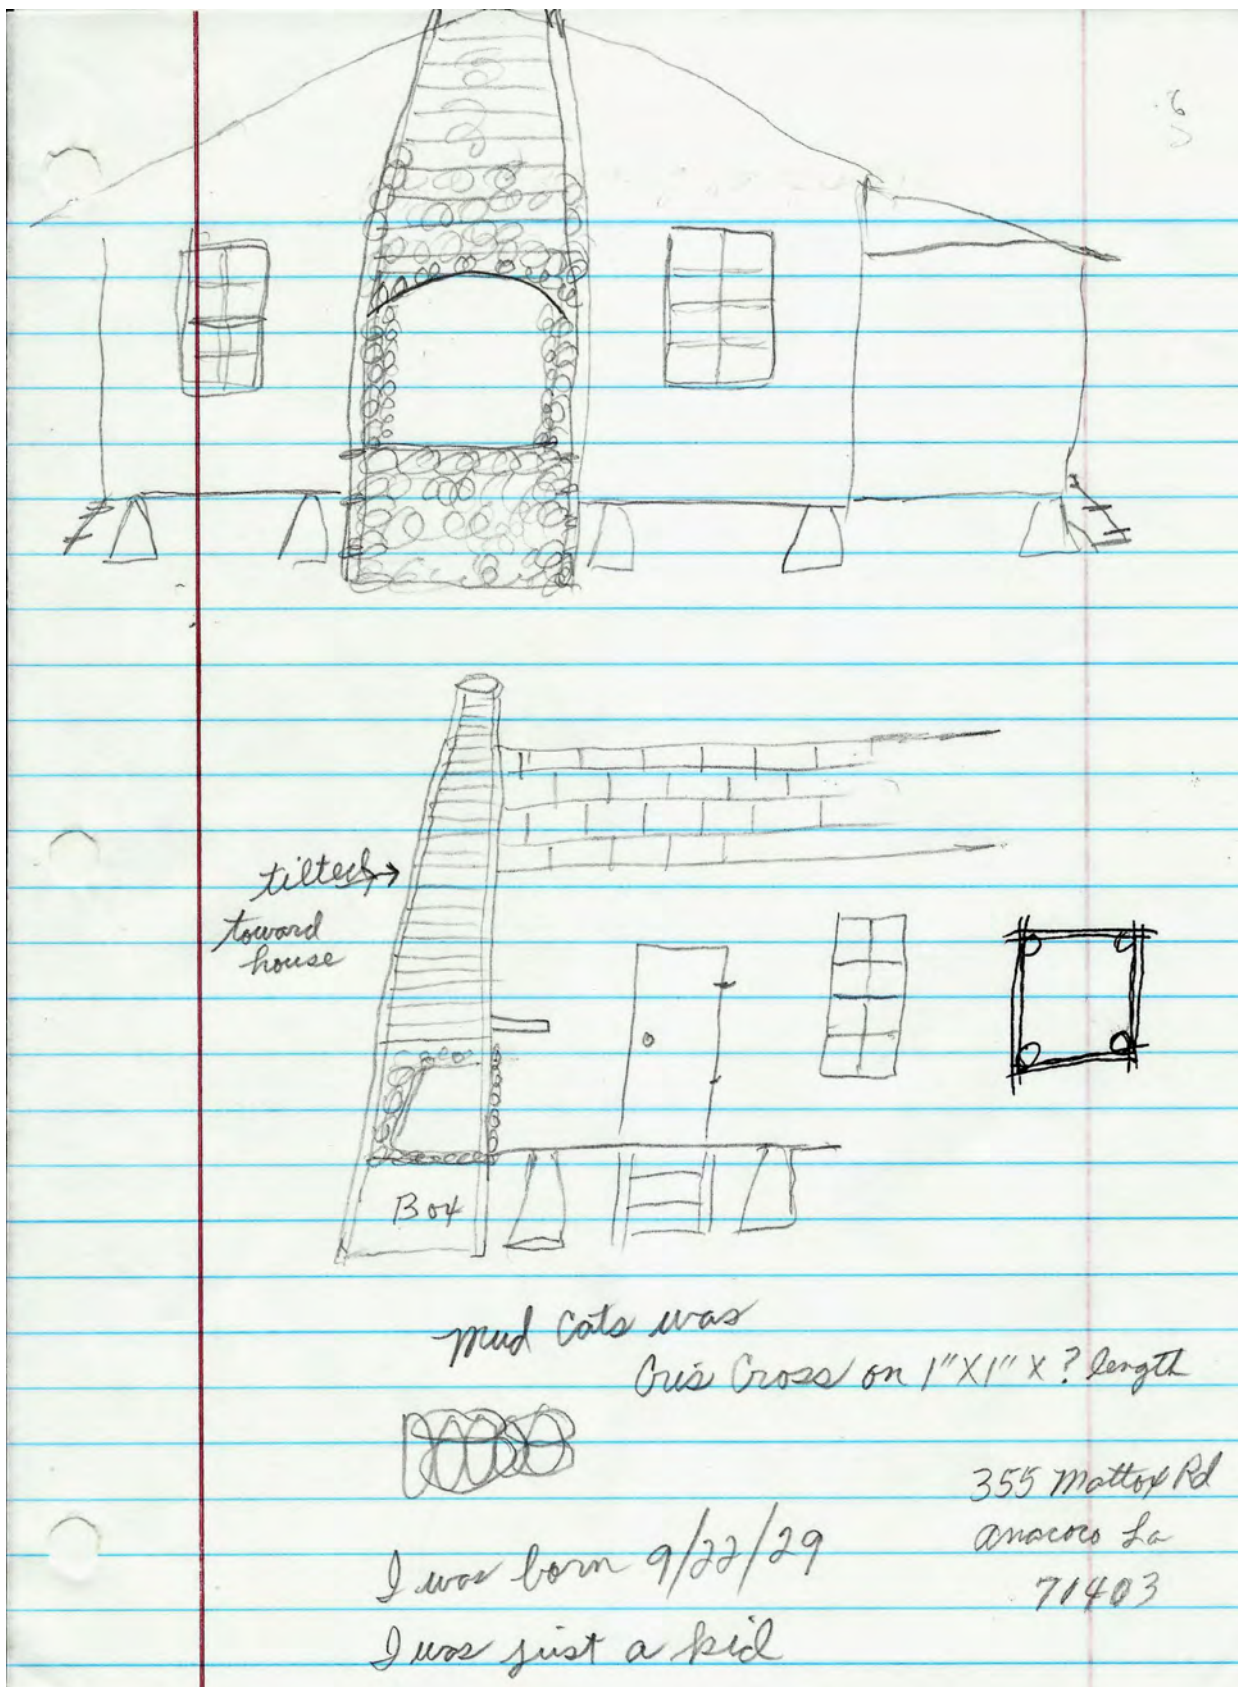 tilted →
toward
house
Box
Mud Cats was
Cris Cross on 1" X 1" X ? length
355 Mattox Rd
Anacoco La
71403
I was born 9/22/29
I was just a kid